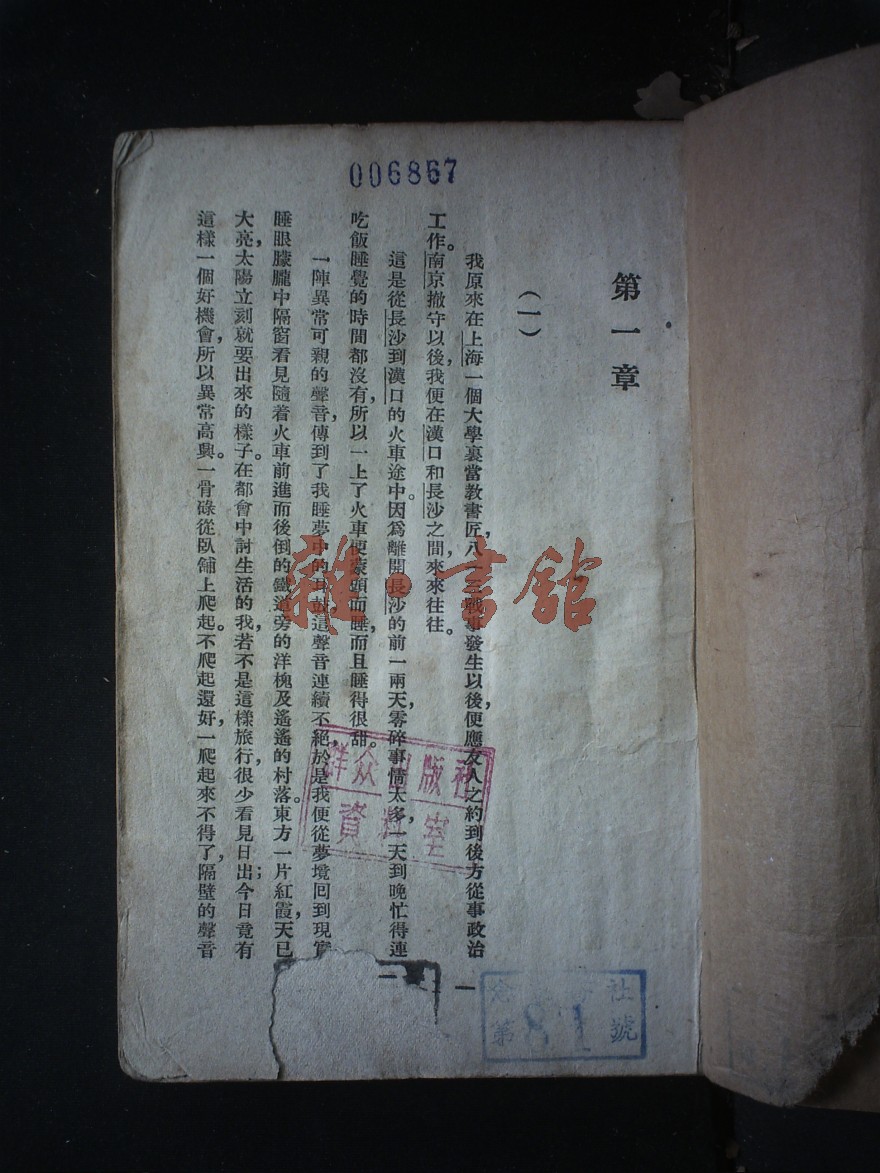 006867
第一章
（一）
我原來在上海一個大學裏當教書匠，八一三戰事發生以後，便應友人之約到後方從事政治
工作。南京撤守以後，我便在漢口和長沙之間，來來往往。
這是從長沙到漢口的火車途中。因爲離開長沙的前一兩天，零碎事情太多，一天到晚忙得連
吃飯睡覺的時間都沒有，所以一上了火車便蒙頭而睡，而且睡得很甜。
一陣異常可親的聲音，傳到了我睡夢中的耳鼓，這聲音連續不絕，於是我便從夢境回到現實
睡眼朦朧中隔窗看見隨着火車前進而後倒的鐵道旁的洋槐及遙遙的村落。東方一片紅霞，天已
大亮，太陽立刻就要出來的樣子。在都會中討生活的我，若不是這樣旅行，很少看見日出；今日竟有
這樣一個好機會，所以異常高興。一骨碌從臥舖上爬起。不爬起還好，一爬起來不得了，隔壁的聲音
一
雜·書舘
群众出版社
資料室
社
第81號